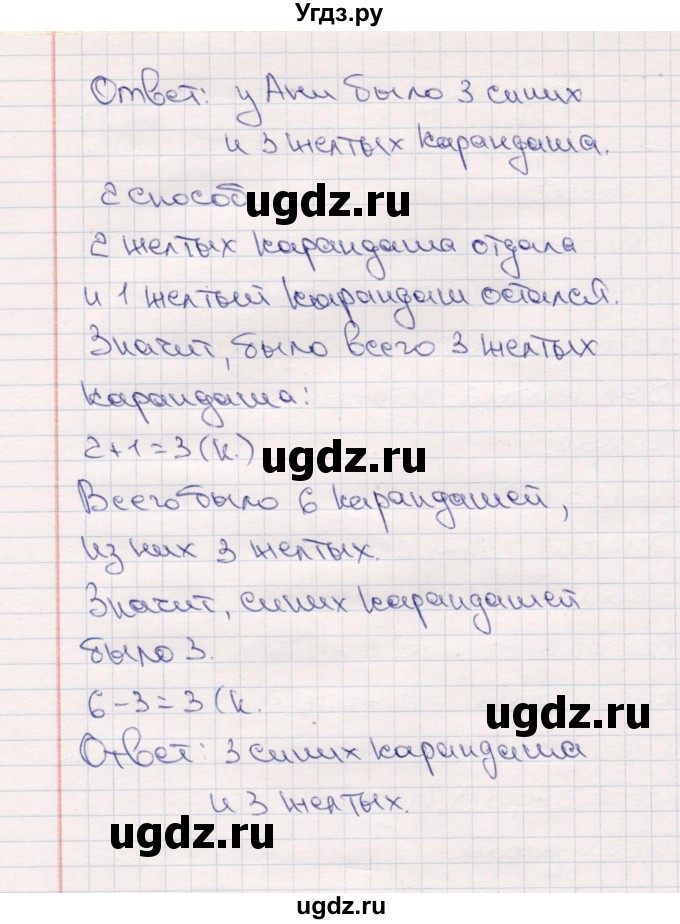 Угдз.ру
Ответ: у Ани было 3 синих
и 3 желтых карандаша.
2 способ
ugdz.ru
2 желтых карандаша отдала
и 1 желтый карандаш остался.
Значит, было всего 3 желтых
карандаша:
2+1=3 (к.)
ugdz.ru
Всего было 6 карандашей,
из них 3 желтых.
Значит, синих карандашей
было 3.
6-3=3 (к.
ugdz.ru
Ответ: 3 синих карандаша
и 3 желтых.
ugdz.ru
ugdz.ru